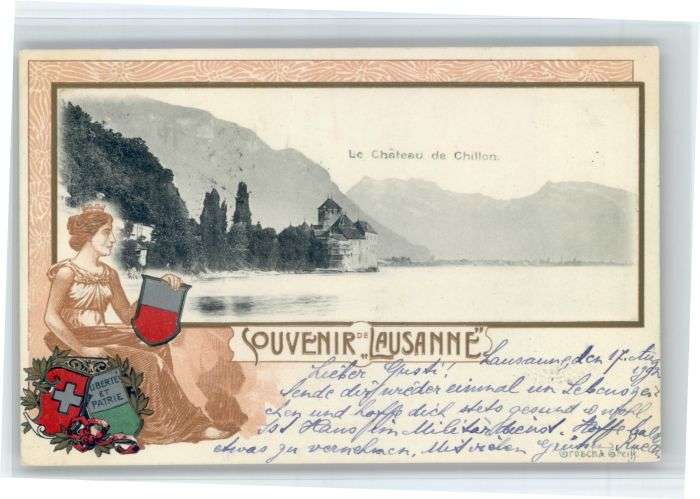 Le Château de Chillon.
SOUVENIR DE "LAUSANNE"
LIBERTÉ
ET
PATRIE
Lausanne, den 17. Aug
Lieber Gusti!
Sende dir wieder einmal ein Lebenszei-
chen und hoffe dich stets gesund &
Ist Hans im Militärdienst. Hoffe bald
etwas zu vernehmen. Mit vielen